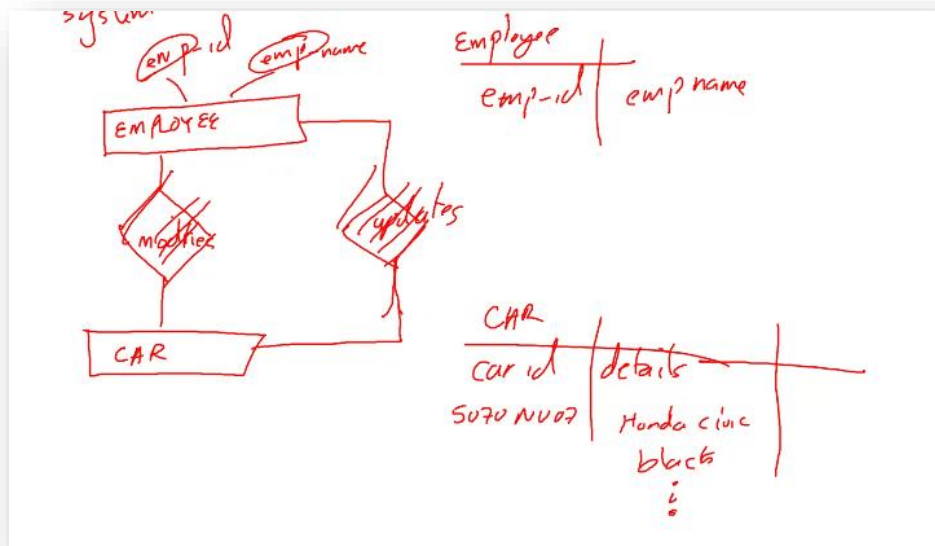 system
emp-id
emp-name
EMPLOYEE
modifies
updates
CAR
Employee
emp-id
emp name
CAR
car id
details
Honda civic
black